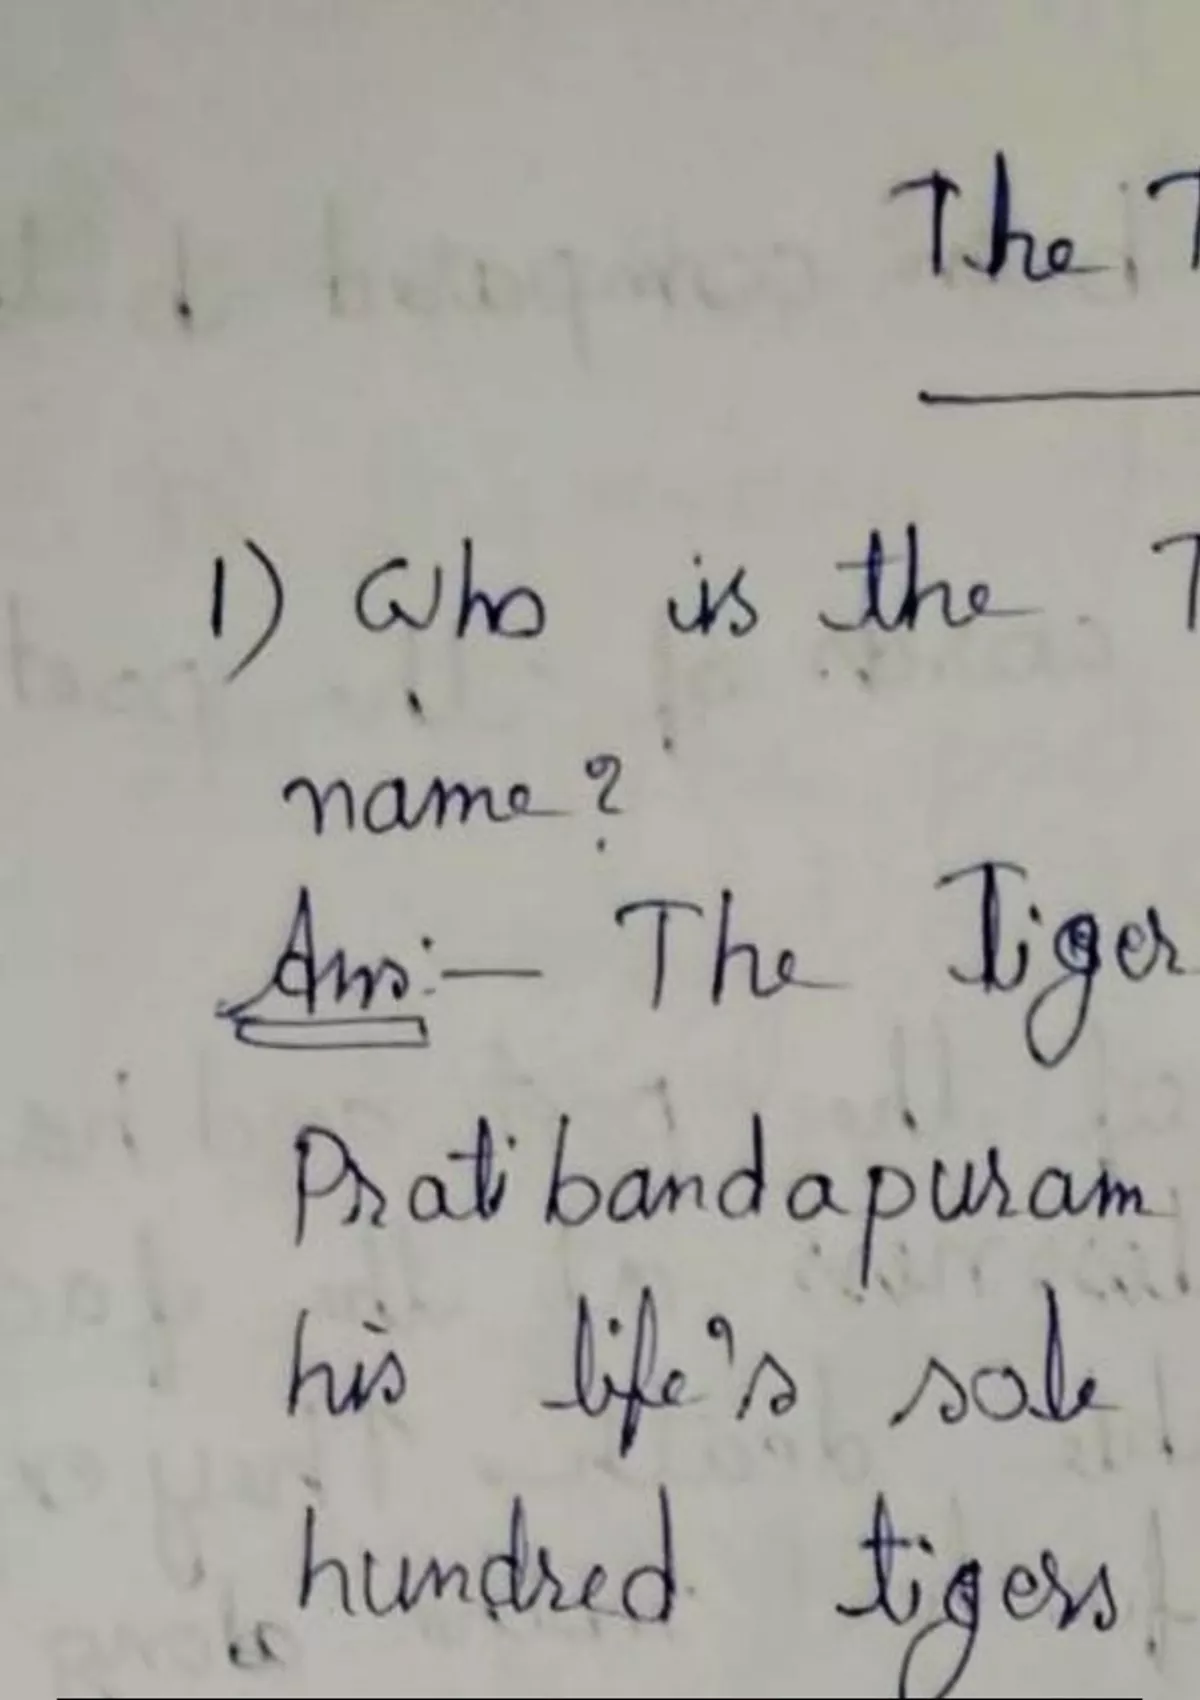 The T
1) Who is the T
name?
Ans:— The Tiger
Pratibandapuram
his life's sole
hundred tigers